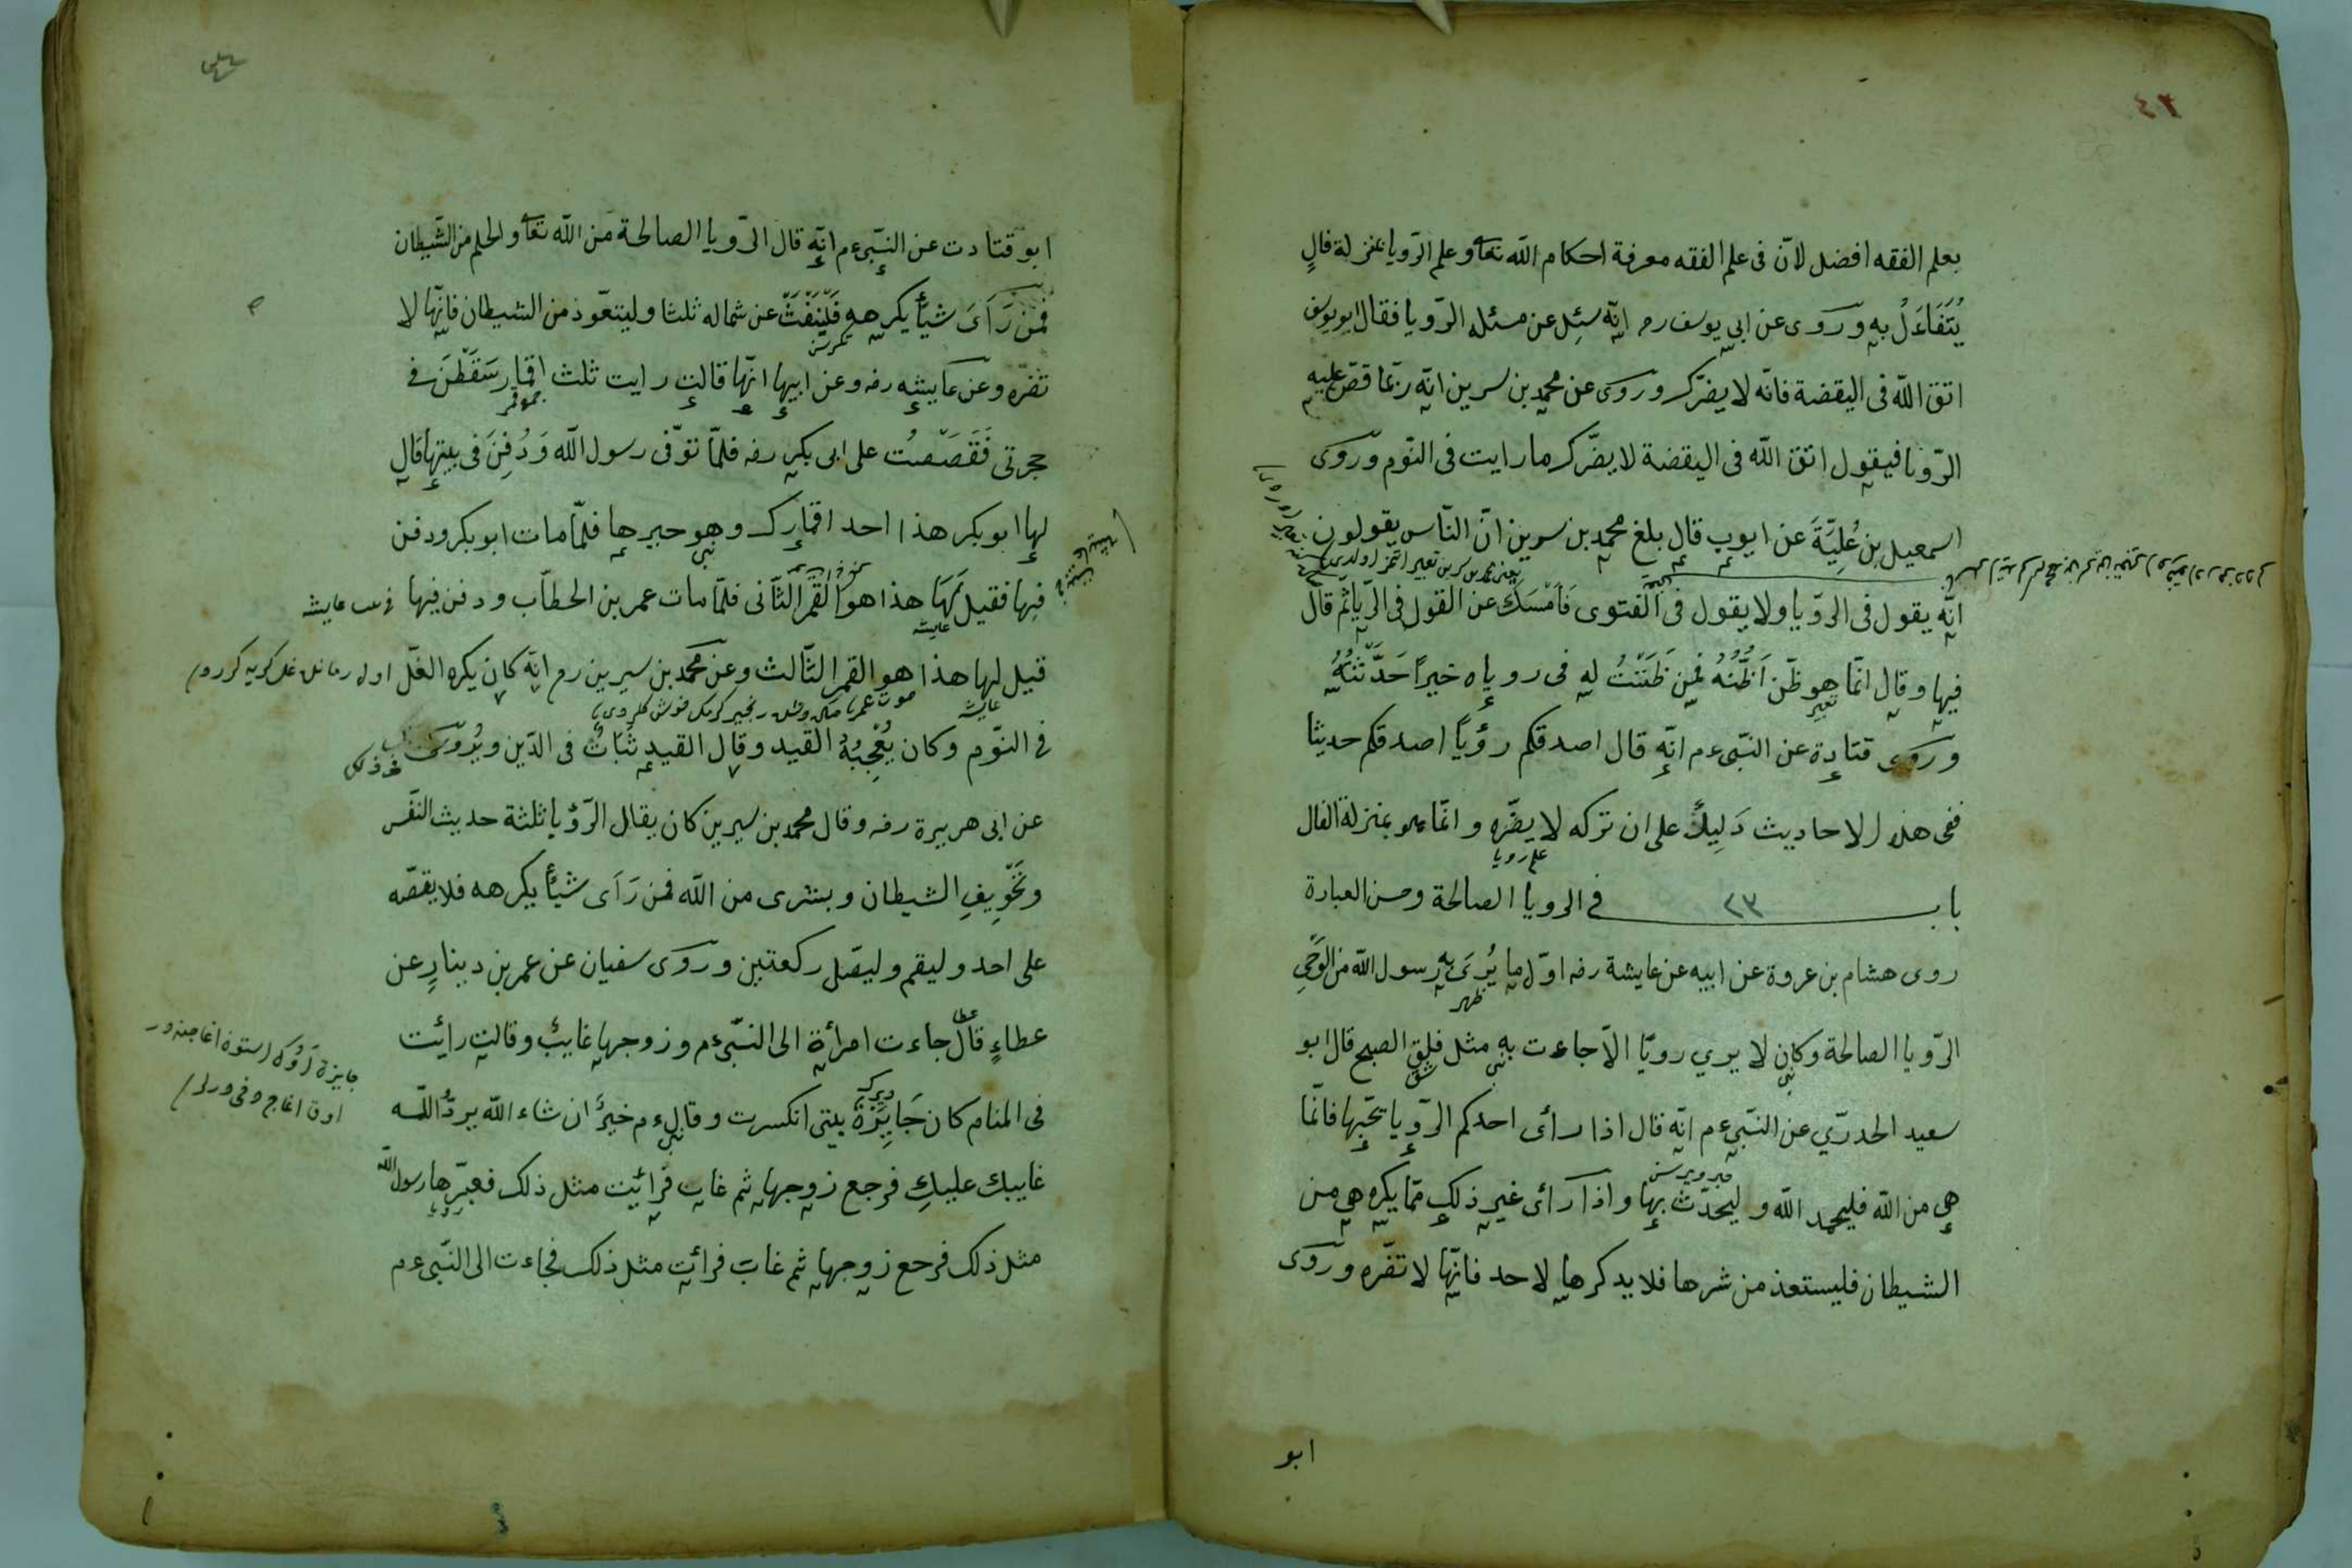 ٢٤
بعلم الفقه افضل لانّ فى علم الفقه معرفة احكام اللّه تعا وعلم الرّويا بمنزلة فالٍ
يُتَفَاءَلُ به وروى عن ابى يوسف رح انّه سئِل عن مسئلة الرّويا فقال ابو يوسف
اتق اللّه فى اليقضة فانّه لا يضرّك وروى عن محمد بن سرين انّه ربّما قصّ عليه
الرّويا فيقول اتق اللّه فى اليقضة لا يضّرك ما رايت فى النّوم وروى
اسمعيل بن عُليّة عن ايوب قال بلغ محمد بن سيرين انّ النّاس يقولون
انّه يقول فى الرّويا ولا يقول فى الفتوى فَاَمْسَكَ عن القول فى الرّيا ثم قال
فيها وقال انّما هو ظّن اَظُنّهُ فمن ظَنَنْتُ له فى روياه خيراً حَدَّثتُهُ
تعبير
وروى قتادة عن النّبى ءم انّه قال اصدقكم رؤياً اصدقكم حديثا
ففى هذه الاحاديث دَلِيلٌ على ان تركه لا يضّره وانّما هو بمنزلة الفال
علم رويا
باب ٢٣ فى الرويا الصالحة وحسن العبارة
روى هشام بن عروة عن ابيه عن عايشة رضه اوّل ما يُرىَ به رسول اللّه من الوَحْىِ
ظهر
الرّويا الصالحة وكان لا يرى رويّا الاّ جاءت به مثل فلق الصبح قال ابو
نبى شق
سعيد الخدرّي عن النّبى ءم انّه قال اذا رأى احدكم الرّويا يحّبها فانّما
هى من اللّه فليحمد اللّه و ليحدّث بها واذا رأى غير ذلك ممّا يكره هى من
الشيطان فليستعذ من شرها فلا يدكرها لاحد فانّها لا تضّره وروى
ابو
ابو قتادت عن النّبى ءم انّه قال الرّويا الصالحة من اللّه تعا والحلم من الشّيطان
فمَنْ رَآىَ شيأً يكرهه فَلْيَنْفَثْ عن شماله ثلثا وليتعّوذ من الشيطان فانّها لا
تضرّه وعن عايشه رضه وعن ابيها انّها قالت رايت ثلث اقمار سَقَطْنَ فى
جمع قمر
حجرتى فَقَصَصْتُ على ابى بكر رضه فلمّا توّفى رسول اللّه وَدُفِنَ فى بيتها قال
لها ابو بكر هذا احد اقمارك وهو خيرها فلمّا مات ابو بكر ودفن
نبى
فيها فقيل لَهَا هذا هو القمر الثّانى فلمّا مات عمر بن الخطّاب ودفن فيها
عايشه
قيل لها هذا هو القمر الثّالث وعن محمد بن سيرين رح انّه كان يكره الغلّ
عايشه
فى النوّم وكان يُعْجِبُهُ القيد وقال القيد ثَبَاتٌ فى الدّين ويُروىَ
عن ابى هريرة رضه وقال محمد بن سيرين كان يقال الرّؤيا ثلثة حديث النّفس
وتَخْوِيفِ الشيطان وبشرى من اللّه فمن رَآى شيأً يكرهه فلا يقصّه
على احد وليقم وليصّل ركعتين وروى سفيان عن عمر بن دينارٍ عن
عطا
عطاءٍ قال جاءت امرأة الى النّبى ءم وزوجها غايبٌ وقالت رأيت
جايزة
ديرك
فى المنام كان جَايِزَةُ بيتى انكسرت وقال ءم خيرٌ ان شاء اللّه يردّ اللّه
نبى
غايبك عليكِ فرجع زوجها ثم غاب فرأيت مثل ذلك فعبّرها رسول اللّه
رويا
مثل ذلك فرجع زوجها ثم غاب فرائت مثل ذلك فجاءت الى النّبى ءم